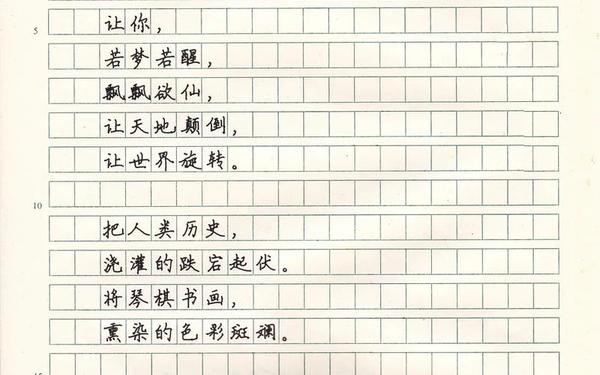 5
让你，
若梦若醒，
飘飘欲仙，
让天地颠倒，
让世界旋转。
10
把人类历史，
浇灌的跌宕起伏。
将琴棋书画，
熏染的色彩斑斓。